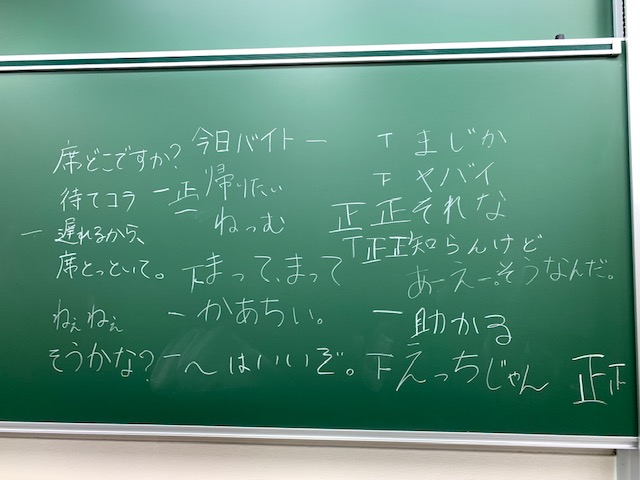 席どこですか?
待てコラ 一
一 遅れるから、
席とっといて。
ねぇねぇ
そうかな?
今日バイト 一
正 帰りたい
一 ねっむ
下 まって、まって
一 かあちい。
一 〜はいいぞ。
T まじか
下 ヤバイ
正正 それな
T正正 知らんけど
あーえー。そうなんだ。
一 助かる
下 えっちじゃん 正正